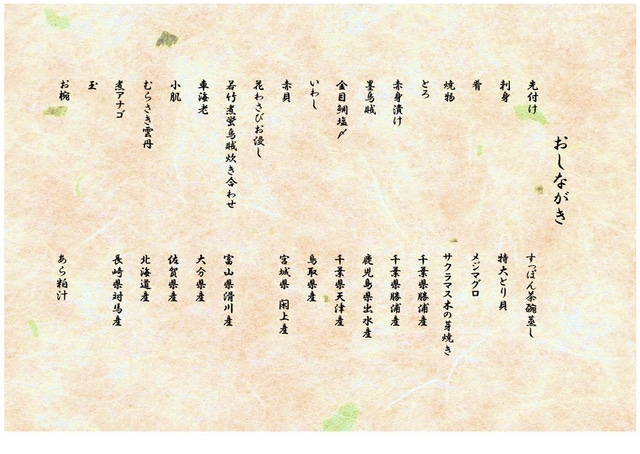 おしながき
先付け　すっぽん茶碗蒸し
刺身　特大とり貝
肴　メジマグロ
焼物　サクラマス木の芽焼き
とろ　千葉県勝浦産
赤身漬け　千葉県勝浦産
墨烏賊　鹿児島県出水産
金目鯛塩〆　千葉県天津産
いわし　鳥取県産
赤貝　宮城県 閖上産
花わさびお浸し
若竹煮蛍烏賊炊き合わせ　富山県滑川産
車海老　大分県産
小肌　佐賀県産
むらさき雲丹　北海道産
煮アナゴ　長崎県対馬産
玉
お椀　あら粕汁